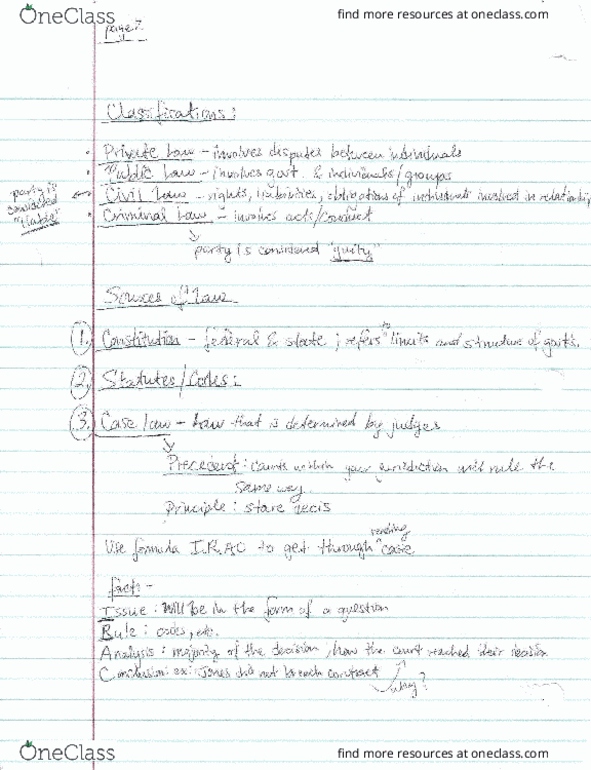 OneClass
find more resources at oneclass.com
page 2
Classifications:
• Private Law – involves disputes between individuals
• Public Law – involves govt. & individuals/groups
• Civil Law – rights, liabilities, obligations of individuals involved in relationship
party is considered "liable"
• Criminal Law – involves acts/conduct
party is considered "guilty"
Sources of Law
1. Constitution – federal & state ; refers to limits and structure of gov'ts.
2. Statutes/Codes:
3. Case law – Law that is determined by judges
Precedent: courts within your jurisdiction will rule the
same way.
Principle: stare decis
Use formula I.R.AC to get through reading case
fact –
Issue: Will be in the form of a question
Rule: codes, etc.
Analysis: majority of the decision, how the court reached their decision
Conclusion: ex: Jones did not breach contract
why?
OneClass
find more resources at oneclass.com